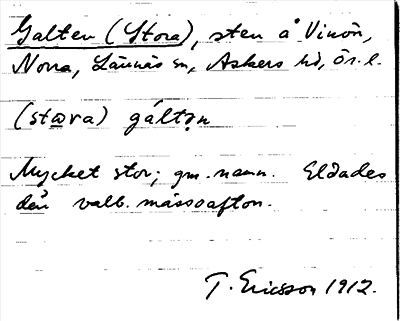 Galten (Stora), sten å Vinön,
Norra, Lännäs sn, Askers hd, Ör. l.
(stɷra) gáltən
Mycket stor; gm. namn. Eldades
den valb. mässoafton.
T. Ericsson 1912.